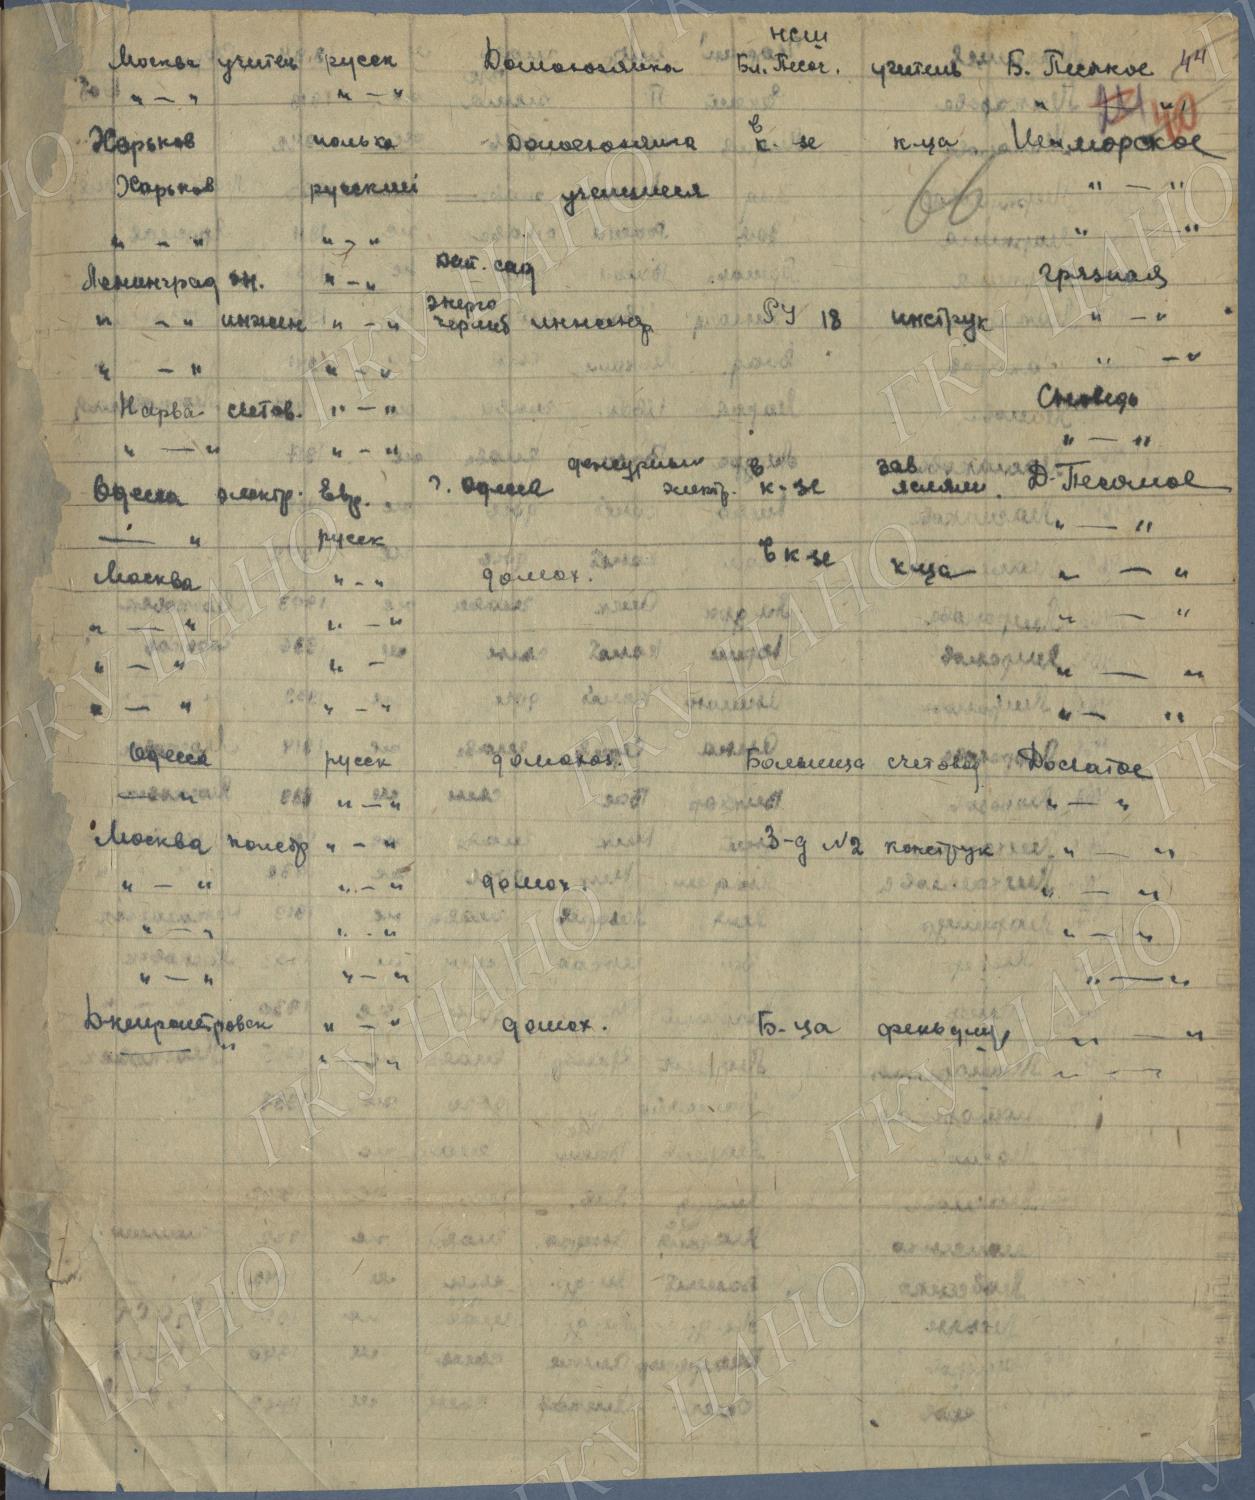 НСШ
Москва учитель русск Домохозяйка Бл. Песоч. учитель Б. Песчаное 44
" — " " — " " " 40
Харьков полька домохозяйка в к-зе к-ца
Харьков русский учащиеся " — "
" — " " — " " "
Ленинград русск дет. сад Грязная
" — " инжен " — " энерго инженер РУ 18 инструк " — "
" — " " — " " — "
Нарва счетов. " — "
" — " " — " " — "
Одесса электр. Евр. г. Одесса дежурный электр. в к-зе зав яслями Д-Песочное
— " русск " — "
Москва " — " домох. в к-зе к-ца " — "
" — " " — " " — "
" — " " — " " — "
" — " " — " " — "
Одесса русск домохоз. Больница счетовод Доскатое
— " " — " " — "
Москва " — " З-д №2 конструк " — "
" — " " — " домох. " — "
" — " " — " " — "
" — " " — " " — "
Днепропетровск " — " домох. Б-ца " — "
— " " — " " — "
ГКУ ЦАНО